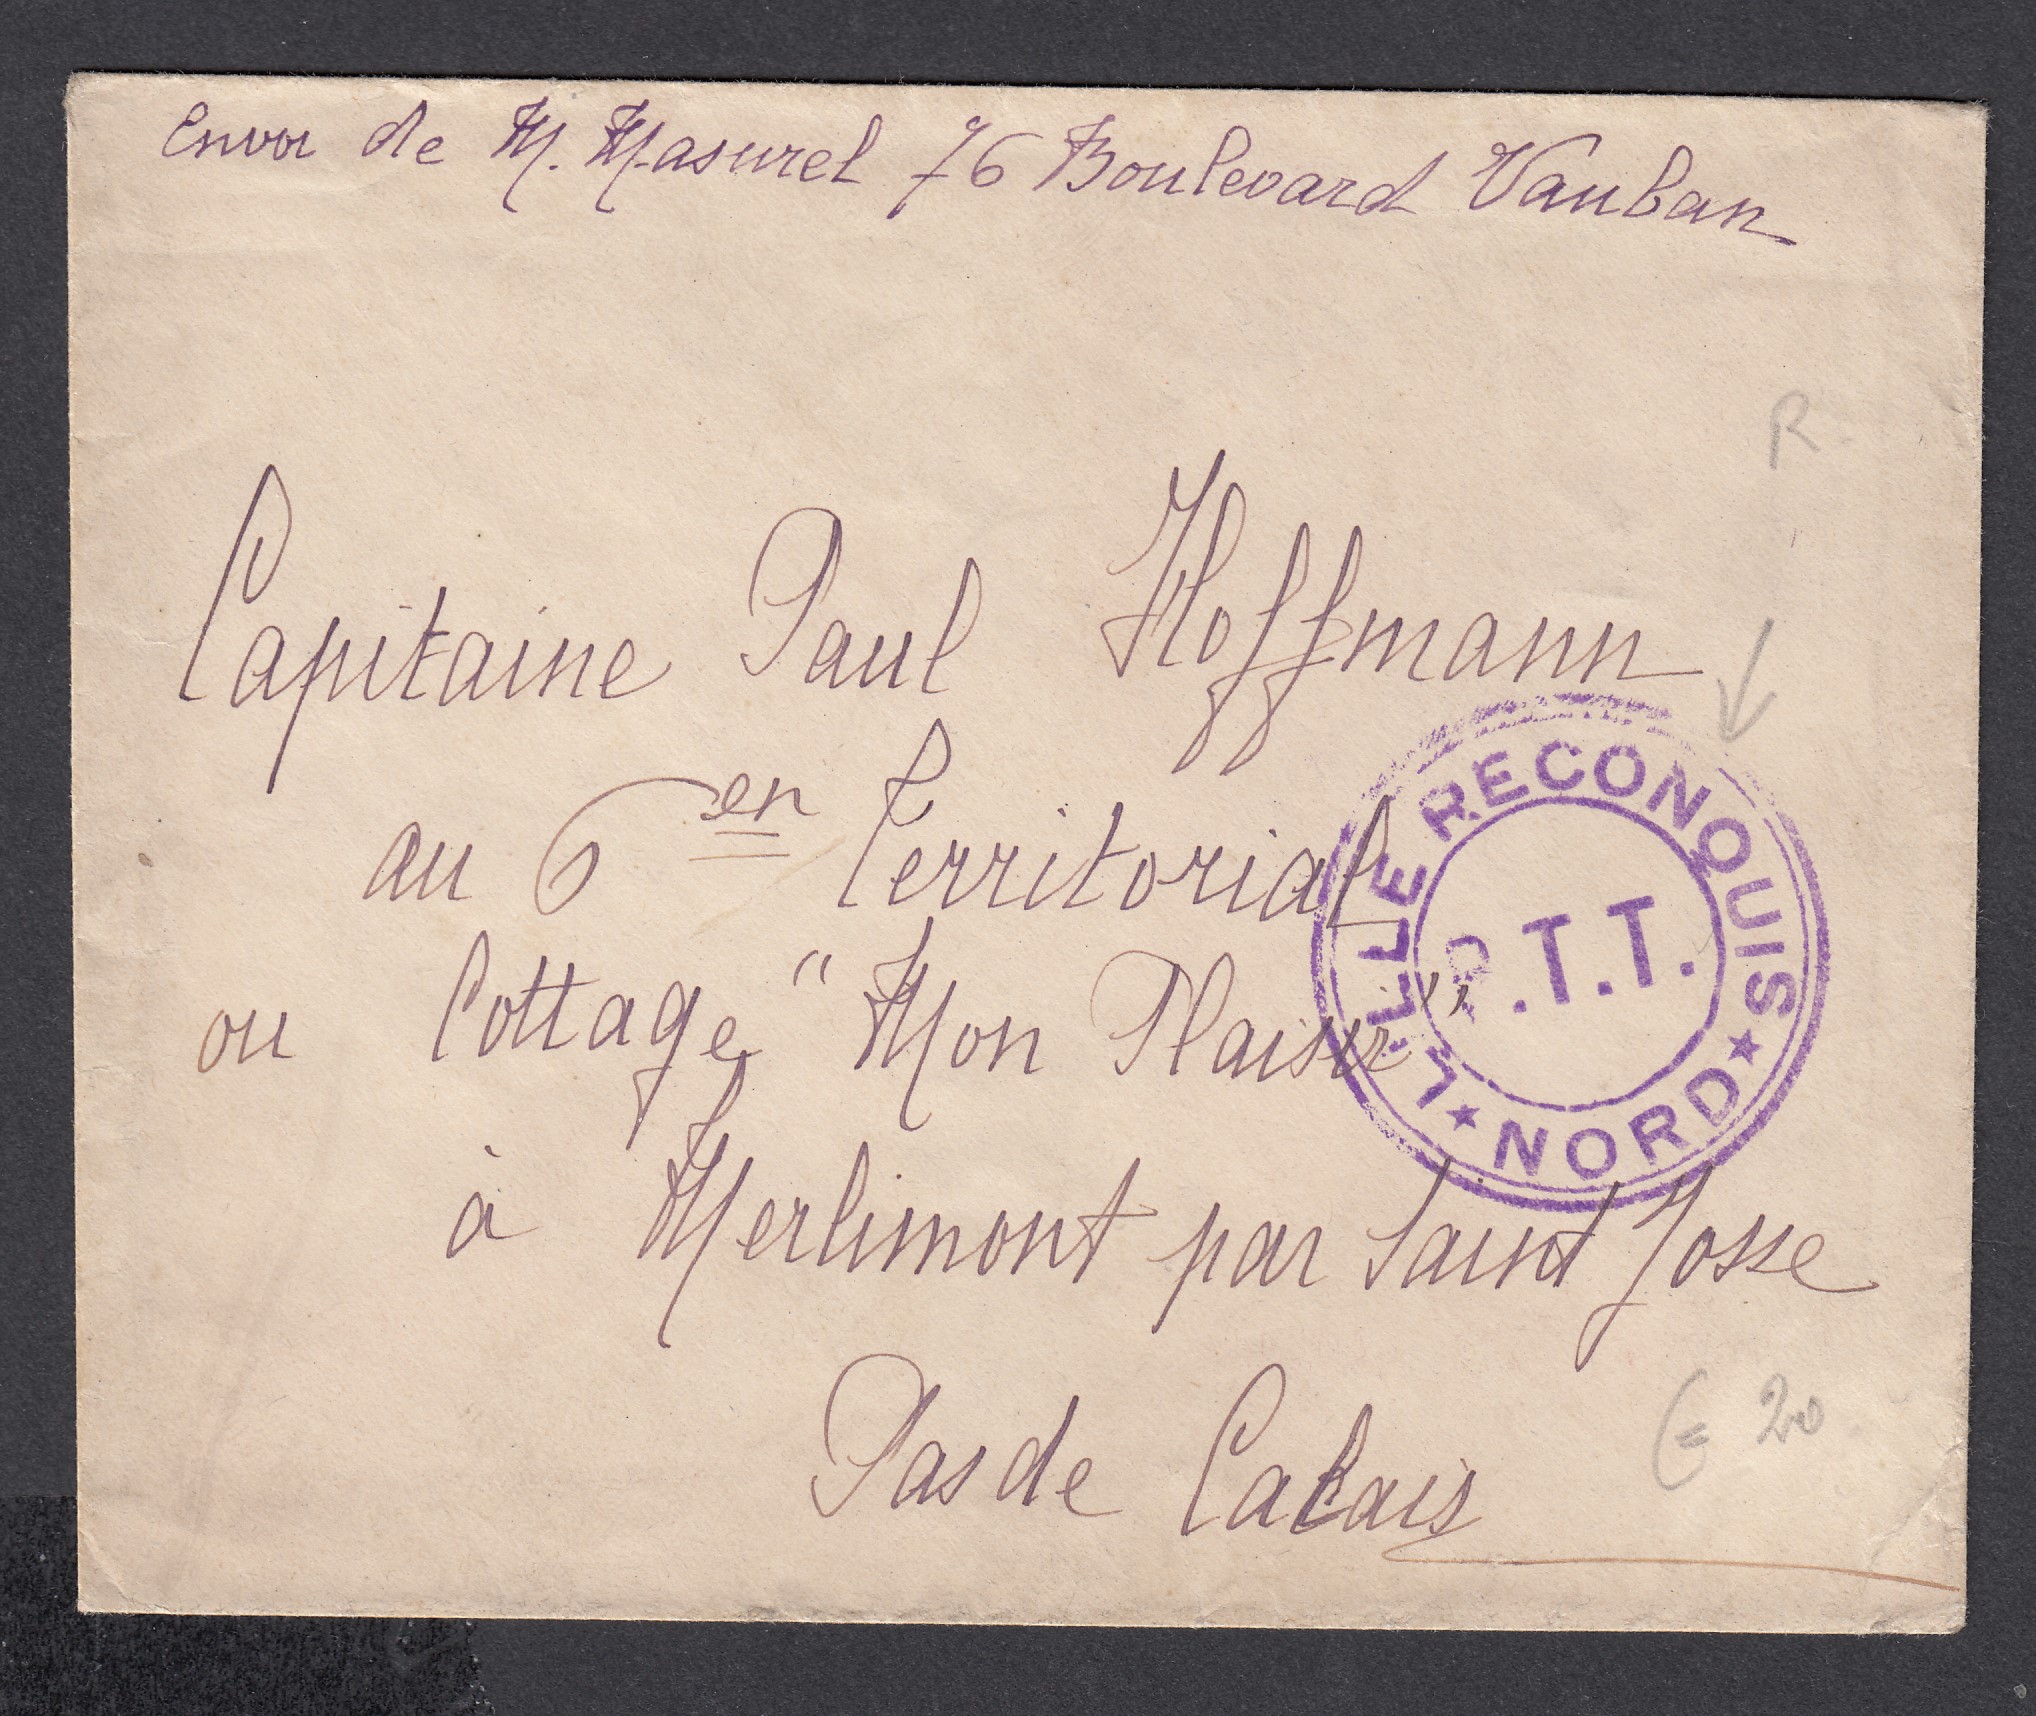 Envoi de M. Masurel 76 Boulevard Vauban
R
Capitaine Paul Hoffmann
au 6en Territorial
ou Cottage "Mon Plaisir"
à Merlimont par Saint Josse
Pas de Calais
LILLE RECONQUIS
P.T.T.
★ NORD ★
20